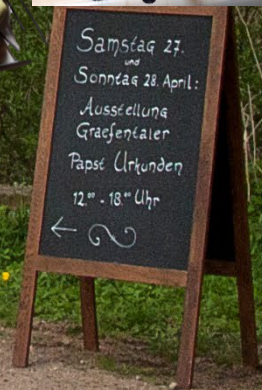 Samstag 27.
und
Sonntag 28. April:
Ausstellung
Graefentaler
Papst Urkunden
12.⁰⁰ - 18.⁰⁰ Uhr